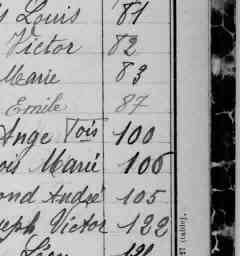 Louis 81
Victor 82
Marie 83
Emile 87
Ange Fois 100
ois Marie 106
ond André 105
seph Victor 122
Léon
27 (table).